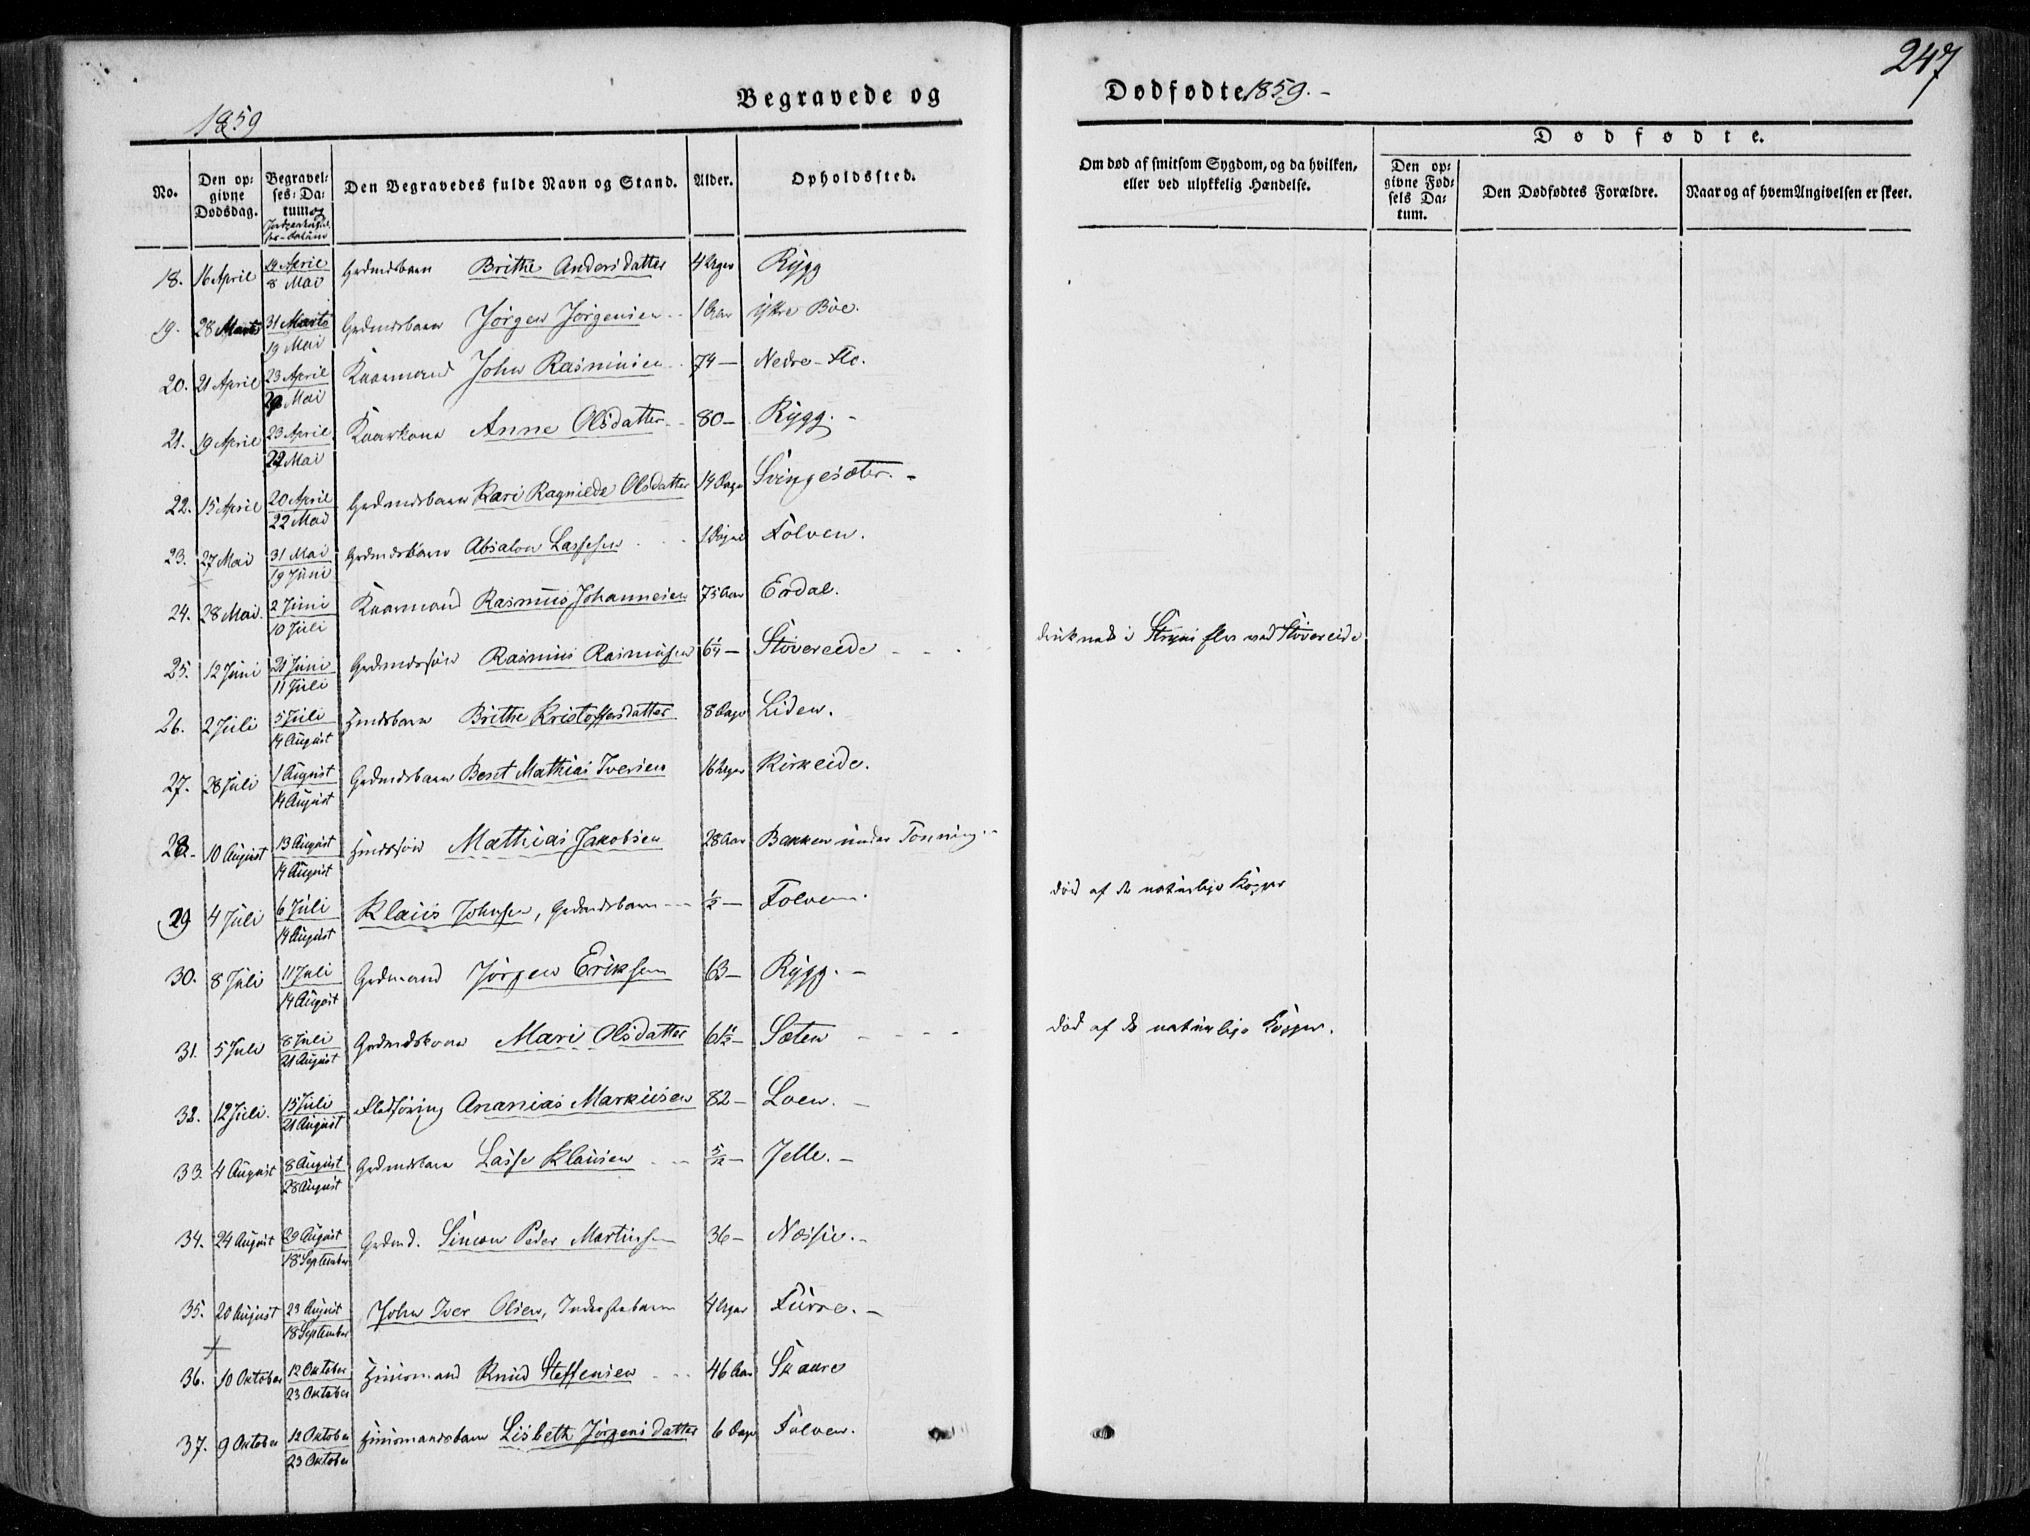 247
Begravede og Dødfødte 1859.-
1859
No.
Den op-
givne
Dødsdag.
Begravel-
ses-Da-
tum og
Den Begravedes fulde Navn og Stand.
Alder.
Opholdssted.
Om død af smitsom Sygdom, og da hvilken,
eller ved ulykkelig Hændelse.
Dødfødte.
Den op-
givne Fød-
sels Da-
tum.
Den Dødfødtes Forældre.
Naar og af hvem Angivelsen er skeet.
18. 16 April 19 April / 8 Mai Grdmdsbarn Brithe Andersdatter 4 Uger Rygg
19. 28 Marts 31 Marts / 19 Mai Grdmdsbarn Jørgen Jørgensen 1 Aar ystre Böe.
20. 21 April 23 April / 29 Mai Kaarmand John Rasmusen 74 — Nedre-Flo.
21. 19 April 23 April / 22 Mai Kaarkone Anne Olsdatter 80 — Rygg. -
22. 15 April 20 April / 22 Mai Grdmdsbarn Kari Ragnilde Olsdatter 14 Dage Svingesæter. -
23. 27 Mai 31 Mai / 19 Juni Grdmdsbarn Absalon Lassesen 1 Døgn Folven.
24. 28 Mai. 2 Juni / 10 Juli Kaarmand Rasmus Johannesen 75 Aar Erdal.
25. 12 Juni 21 Juni / 11 Juli Grdmdssøn Rasmus Rasmusen 6¼ — Støvereide - - - druknede i Stryns elv ved Støvereide
26. 2 Juli 5 Juli / 14 August Hmdsbarn Brithe Kristoffersdatter 8 Dage Liden.
27. 28 Juli 1 August / 14 August Grdmdsbarn Bent Mathias Iversen 16 Uger Kirkeide.
28. 10 August 13 August / 14 August Hmdssøn Mathias Jakobsen 28 Aar Bakken under Tonning. -
29 4 Juli 6 Juli / 14 August Klaus Johnsen, Grdmdsbarn ½ — Folven. død af de naturlige Kopper
30. 8 Juli 11 Juli / 14 August Grdmand Jørgen Eriksen 63 — Rygg. -
31. 5 Juli 8 Juli / 21 August Grdmdskone Mari Olsdatter 61½ — Sæten - - - - død af de naturlige Kopper.
32. 12 Juli. 15 Juli / 21 August Fladføring Ananias Markusen 82 — Loen. -
33. 4 August 8 August / 28 August Grdmdsbarn Lasse Klausen 5/12 — Jelle. -
34. 24 August 29 August / 18 September Grdmd. Simon Peder Martinsen 36 — Næssie. -
35. 20 August 23 August / 18 September John Iver Olsen, Inderstebarn 4 Uger Furre. -
36. 10 Oktober 12 Oktober / 23 Oktober Huusmand Knud Steffensen 46 Aar Skaare
37. 9 Oktober 12 Oktober / 23 Oktober Huusmandsbarn Lisbeth Jørgensdatter 6 Dage Folven.